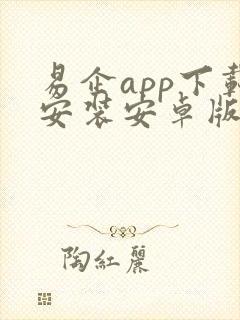 易企app下载
安装安卓版
陶紅麗